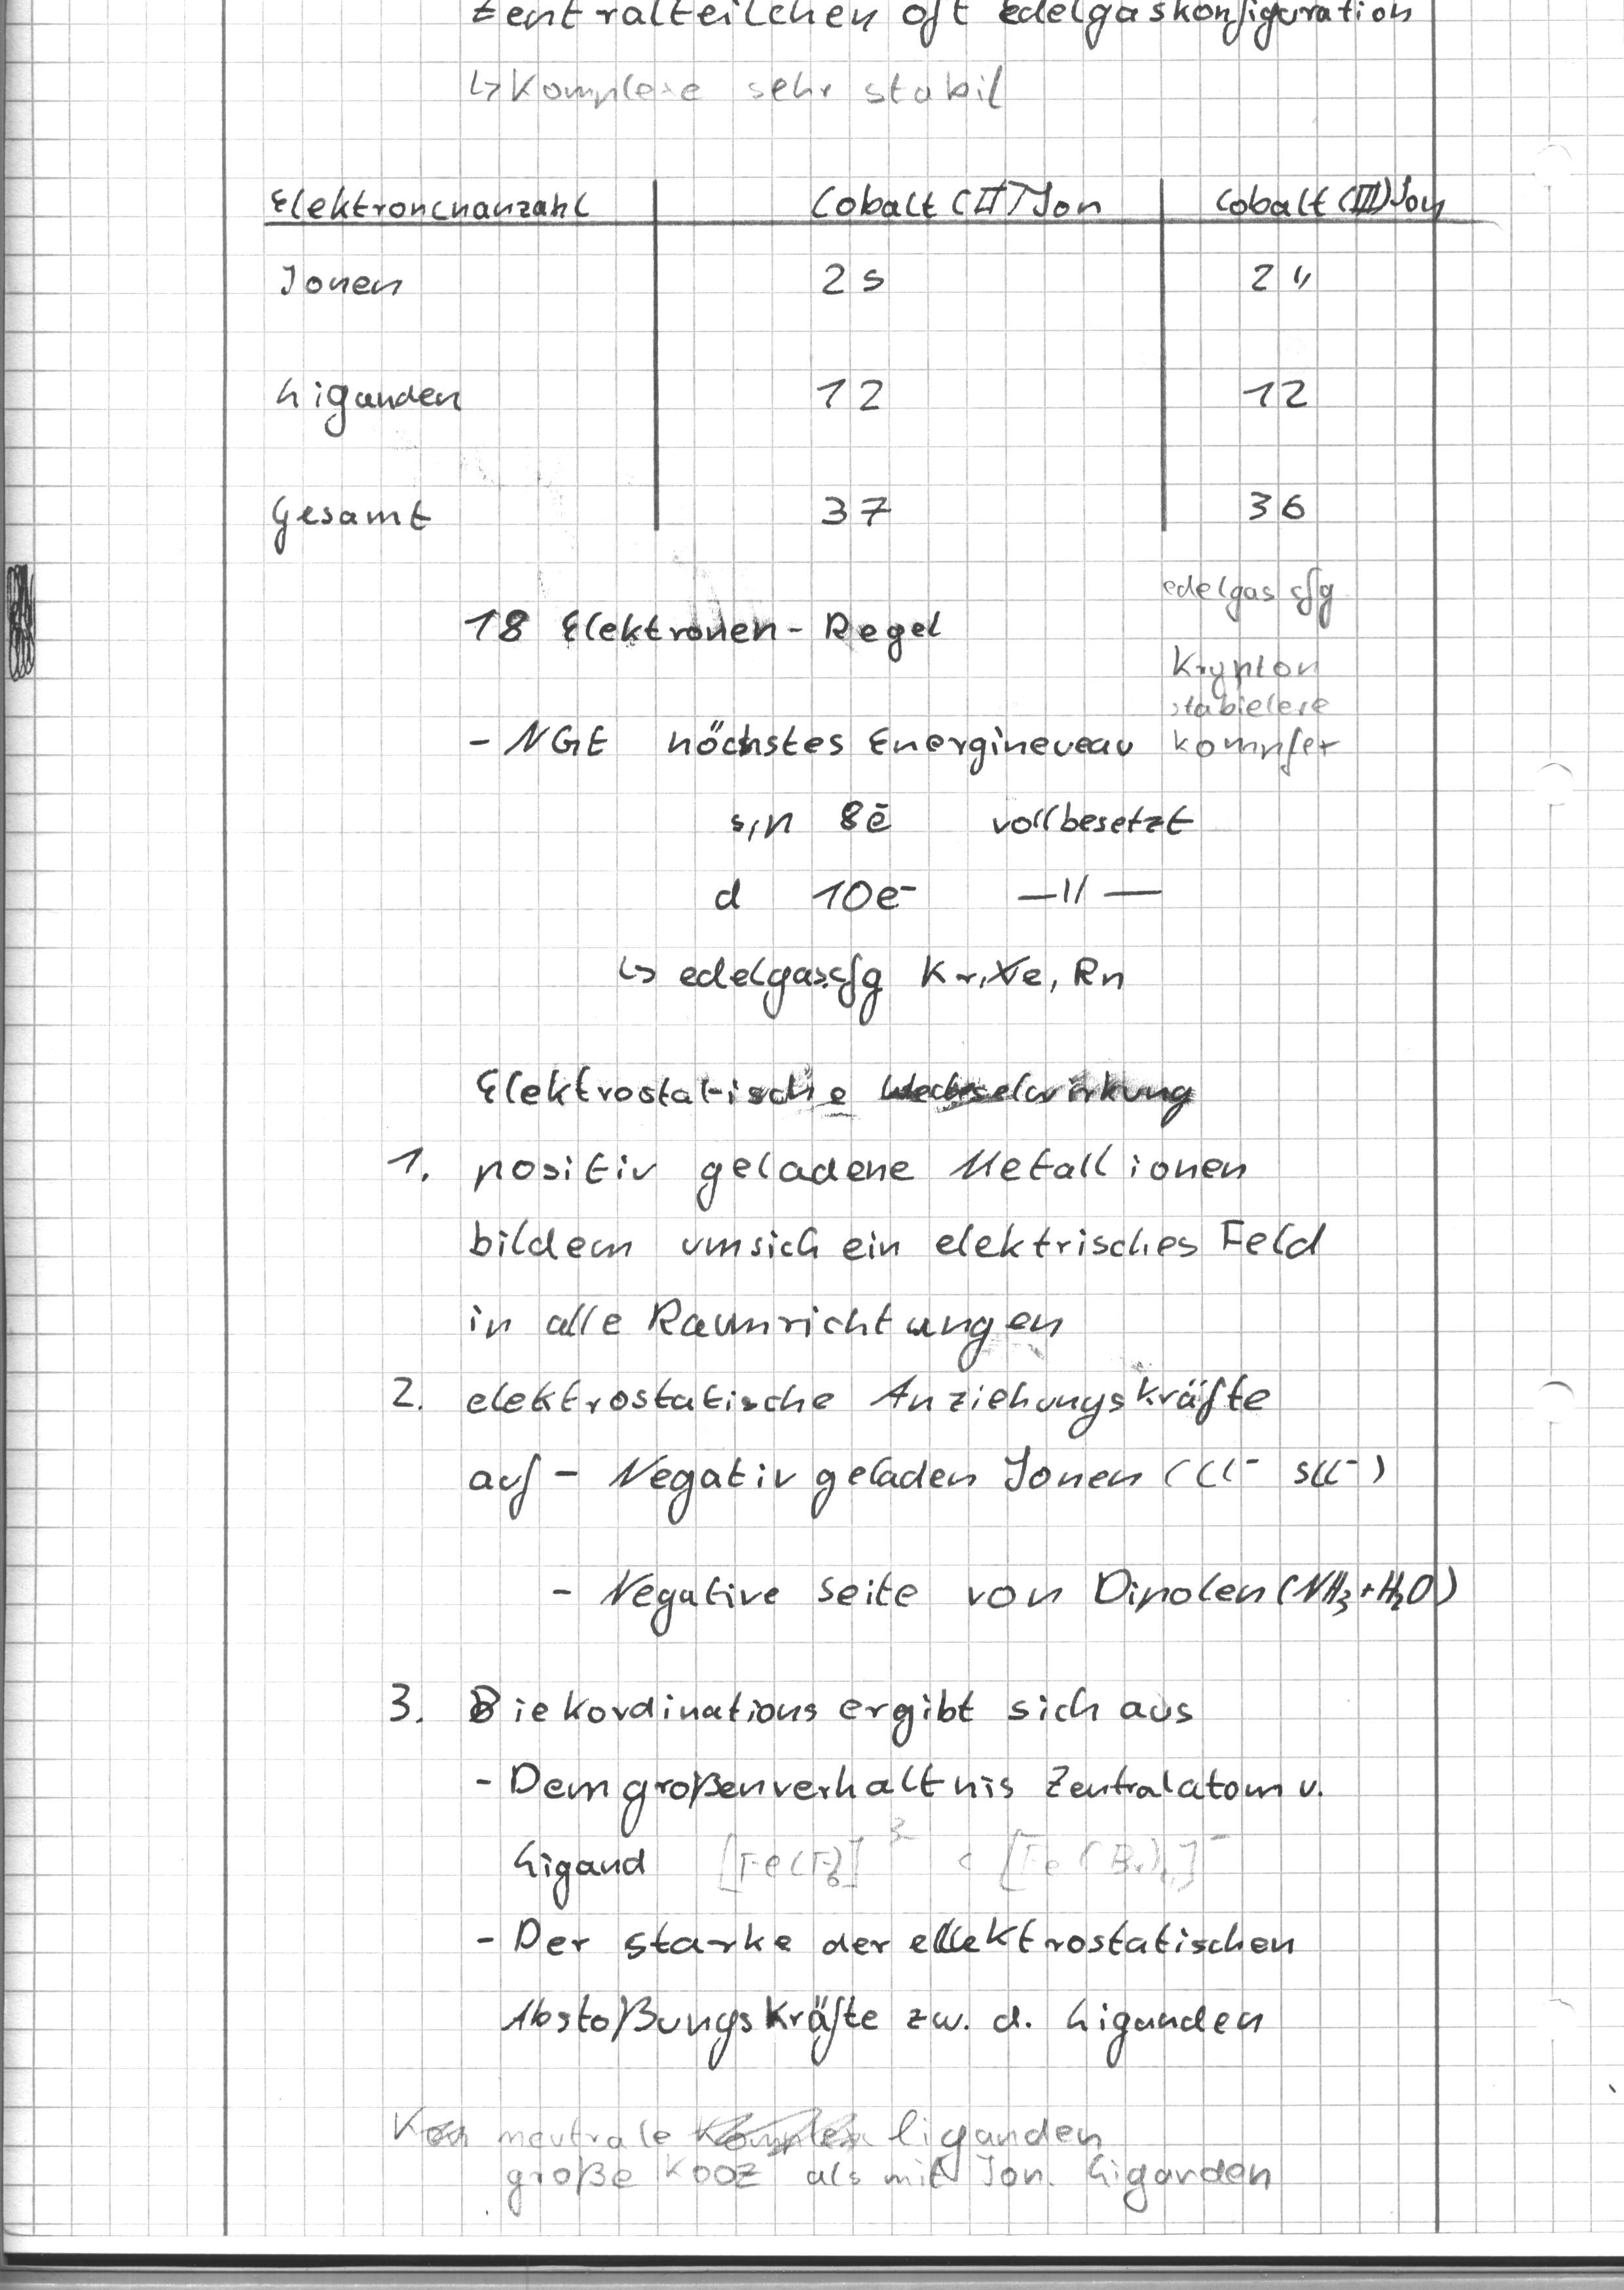 Zentralteilchen oft edelgaskonfiguration
↳ Komplexe sehr stabil
Elektronenanzahl Cobalt (II) Ion Cobalt (III) Ion
Ionen 25 24
Liganden 12 12
Gesamt 37 36
edelgas cfg
18 Elektronen-Regel
Krypton
stabielere
- NGE höchstes Energineveau
s,p 8e̅ vollbesetzt
d 10e⁻ —〃—
↳ edelgascfg Kr, Xe, Rn
Elektrostatische Wechselwirkung
1. positiv geladene Metallionen
bildem umsich ein elektrisches Feld
in alle Raumrichtungen
2. elektrostatische Anziehungskräfte
auf - Negativ geladen Ionen (Cl⁻
- Negative seite von Dipolen (NH₃ + H₂O)
3. Die Koordinations ergibt sich aus
- Dem großenverhaltnis Zentralatom u.
Ligand [Fe(F)₆]³⁻ < [Fe(Br)₄]⁻
- Der starke der ellektrostatischen
Abstoßungskräfte zw. d. Liganden
neutrale liganden
große KOOZ als mit Ion. Liganden